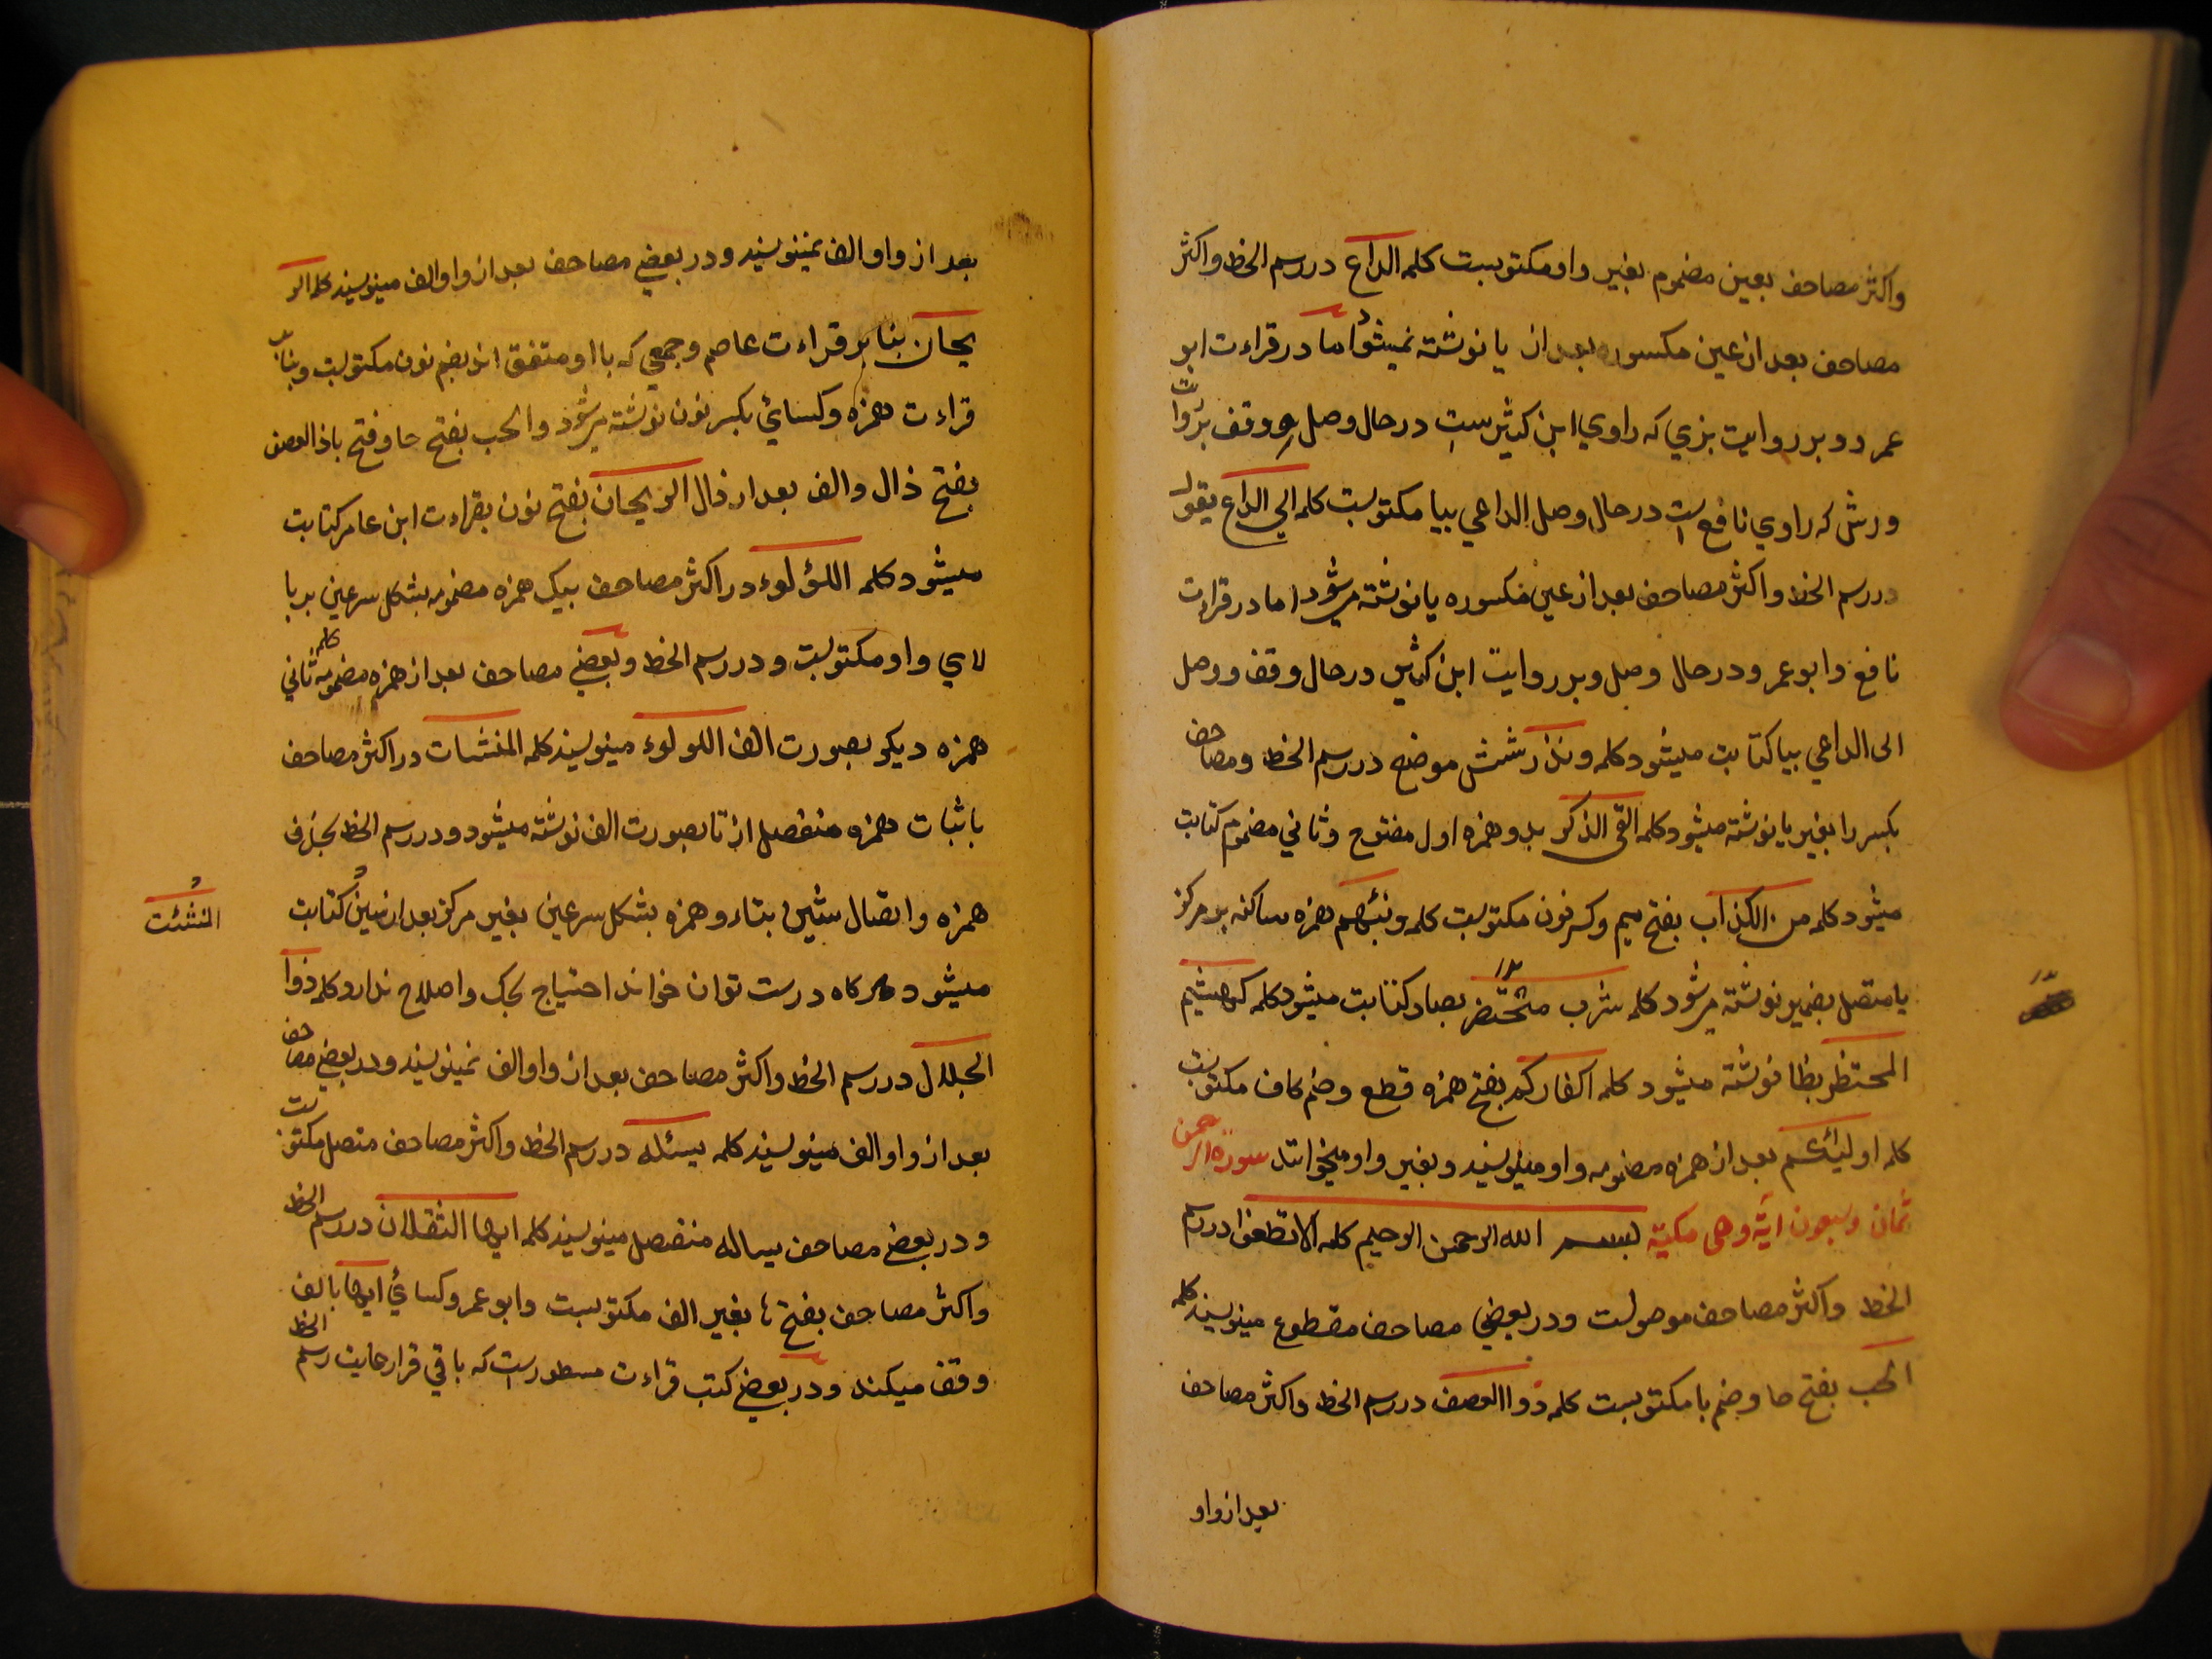 واکثر مصاحف بعین مضموم بغیر واو مکتوبست کلمه الداع در رسم الخط واکثر
مصاحف بعد از عین مکسوره بعد از یا نوشته نمیشود اما در قراءت ابو
عمرو و بر روایت بزي که راوي ابن کثیرست در حال وصل و وقف بروایت
ورش که راوي نافع است در حال وصل الداعي بیا مکتوبست کلمه الی الداع یقول
در رسم الخط واکثر مصاحف بعد از عین مکسوره یا نوشته میشود اما در قراءت
نافع وابو عمرو در حال وصل وبر روایت ابن کثیر در حال وقف ووصل
الی الداعي بیا کتابت میشود کلمه ونذر شش موضع در رسم الخط ومصاحف
بکسر را بغیر یا نوشته میشود کلمه القی الذکر بدو همزه اول مفتوح وثاني مضموم کتابت
میشود کلمه من الکذاب بفتح میم وکسر نون مکتوبست کلمه ونبئهم همزه ساکنه بر مرکز
یا متصل بضمیر نوشته میشود کلمه شرب محتضر بضاد کتابت میشود کلمه کهشیم
المحتظر بظا نوشته میشود کلمه اکفارکم بفتح همزه قطع وضم کاف مکتوبست
کلمه اولیائکم بعد از همزه مضمومه واو مینویسند وبغیر واو میخوانند سورة الرحمن
ثمان وسبعون ایة وهی مکیة بسم الله الرحمن الرحیم کلمه الا تطغوا در رسم
الخط واکثر مصاحف موصولست ودر بعضي مصاحف مقطوع مینویسند کلمه
الحب بفتح حا وضم با مکتوبست کلمه ذوا العصف در رسم الخط واکثر مصاحف
بعد از واو
بعد از واو الف نمینویسند ودر بعضي مصاحف بعد از واو الف مینویسند کلمه الر
یحان بنا بر قراءت عاصم وجمعي که با او متفق اند بضم نون مکتوبست وبنا بر
قراءت حمزه وکسائي بکسر نون نوشته میشود والحب بفتح حا وفتح با ذا العصف
بفتح ذال والف بعد از ذال الریحان بفتح نون بقراءت ابن عامر کتابت
میشود کلمه اللؤلوء در اکثر مصاحف بیک همزه مضمومه بشکل سرعین بر با
لاي واو مکتوبست ودر رسم الخط وبعضي مصاحف بعد از همزه مضمومه کلمه ثاني
همزه دیکر بصورت الف اللولوء مینویسند کلمه المنشات در اکثر مصاحف
باثبات همزه منفصل از تا بصورت الف نوشته میشود ودر رسم الخط بحذف
همزه واتصال شین بتاء وهمزه بشکل سرعین بغیر مرکز بعد از شین کتابت
المنشئت
میشود هرکاه درست توان خواند احتیاج بحک واصلاح ندارد کلمه ذوا
الجلال در رسم الخط واکثر مصاحف بعد از واو الف نمینویسند ودر بعضي مصاحف
بعد از واو الف مینویسند کلمه یسئله در رسم الخط واکثر مصاحف متصل مکتوبست
ودر بعضي مصاحف یساله منفصل مینویسند کلمه ایها الثقلان در رسم الخط
واکثر مصاحف بفتح ها بغیر الف مکتوبست وابو عمرو وکسائي ایها بالف
وقف میکنند ودر بعضي کتب قراءت مسطورست که باقي قرا رعایت رسم الخط